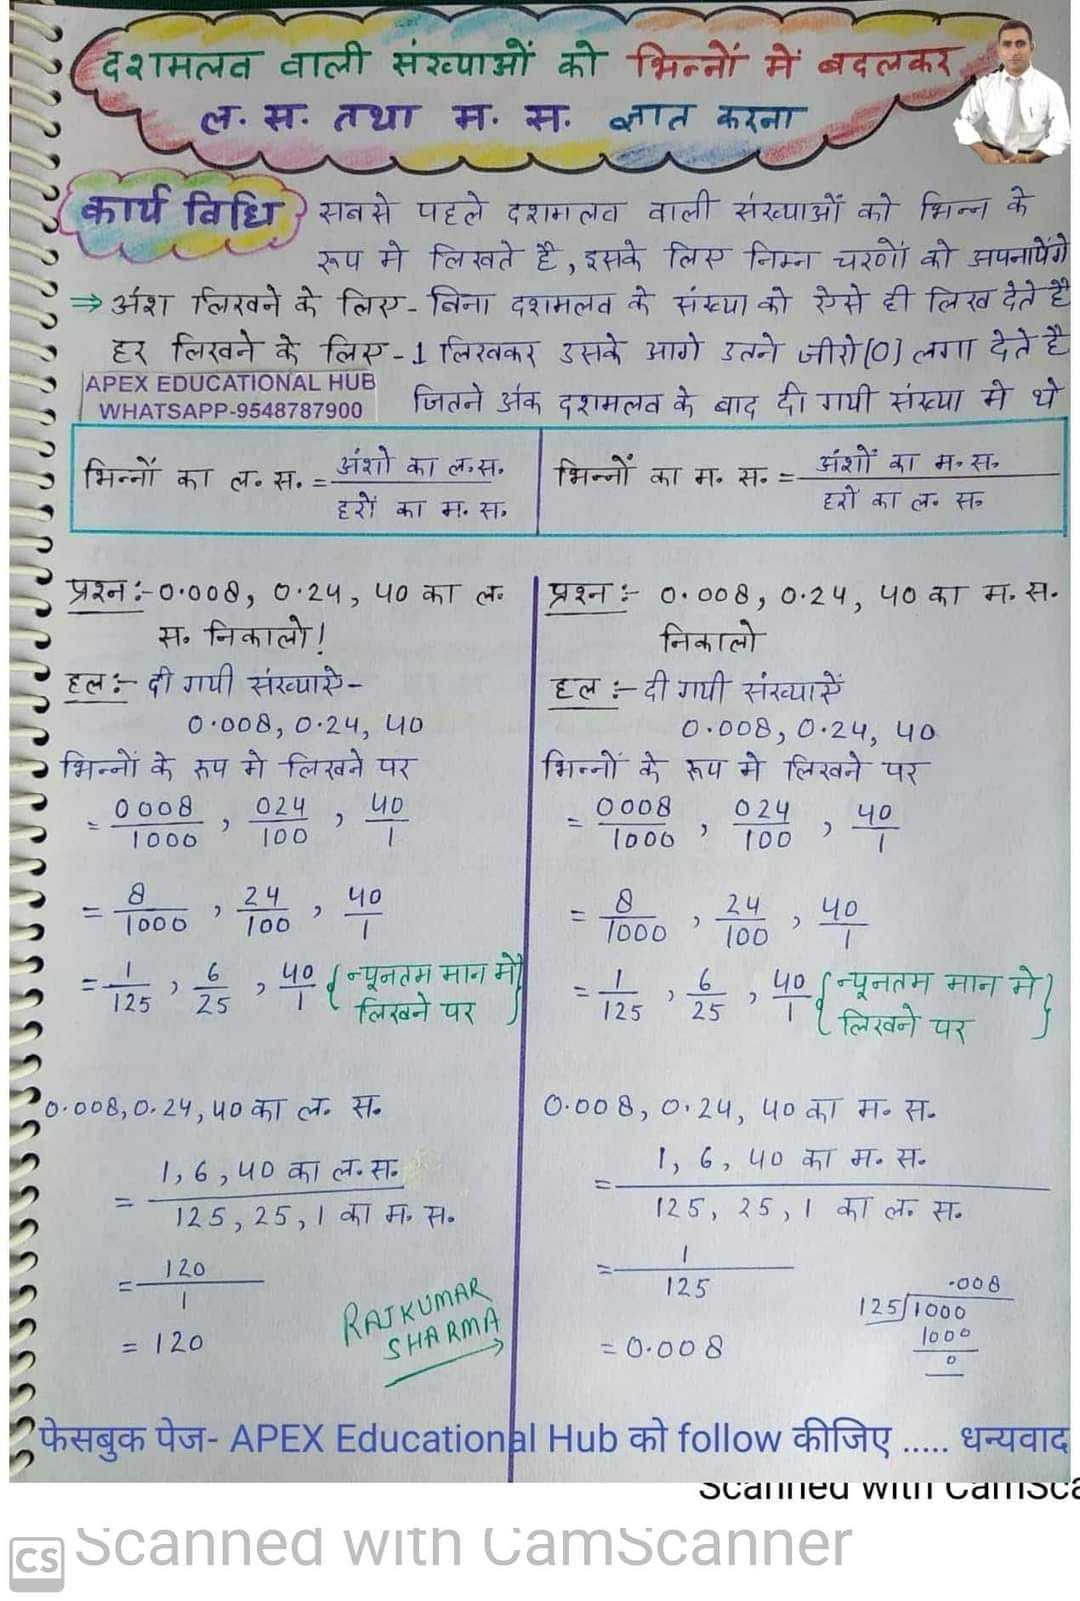 दशमलव वाली संख्याओं को भिन्नों में बदलकर
ल. स. तथा म. स. ज्ञात करना
कार्य विधि सबसे पहले दशमलव वाली संख्याओं को भिन्न के
रूप मे लिखते है, इसके लिए निम्न चरणों को अपनायेंगे
⇒ अंश लिखने के लिए - बिना दशमलव के संख्या को ऐसे ही लिख देते है
हर लिखने के लिए - 1 लिखकर उसके आगे उतने जीरो (0) लगा देते है
जितने अंक दशमलव के बाद दी गयी संख्या मे थे
APEX EDUCATIONAL HUB
WHATSAPP-9548787900
भिन्नों का ल. स. = अंशो का ल.स. / हरों का म. स.
भिन्नों का म. स. = अंशों का म. स. / हरो का ल. स.
प्रश्न :- 0.008, 0.24, 40 का ल.
स. निकालो!
हल :- दी गयी संख्याऐ -
0.008, 0.24, 40
भिन्नों के रूप मे लिखने पर
= 0008/1000 , 024/100 , 40/1
= 8/1000 , 24/100 , 40/1
= 1/125 , 6/25 , 40/1 { न्यूनतम मान मे
लिखने पर }
0.008, 0.24, 40 का ल. स.
= 1, 6, 40 का ल. स. / 125, 25, 1 का म. स.
= 120/1
= 120
RAJKUMAR
SHARMA
प्रश्न :- 0.008, 0.24, 40 का म. स.
निकालो
हल :- दी गयी संख्याऐं
0.008, 0.24, 40
भिन्नों के रूप मे लिखने पर
= 0008/1000 , 024/100 , 40/1
= 8/1000 , 24/100 , 40/1
= 1/125 , 6/25 , 40/1 { न्यूनतम मान मे
लिखने पर }
0.008, 0.24, 40 का म. स.
= 1, 6, 40 का म. स. / 125, 25, 1 का ल. स.
= 1/125
= 0.008
.008
125)1000
1000
0
फेसबुक पेज- APEX Educational Hub को follow कीजिए ..... धन्यवाद
Scanned with CamSca
CS Scanned with CamScanner